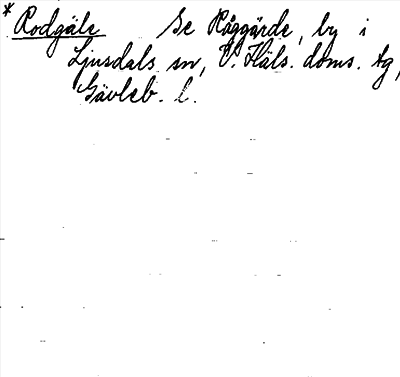 * Rodgäle Se Råggärde, by i
Ljusdals sn, V. Häls. doms. tg,
Gävleb. l.